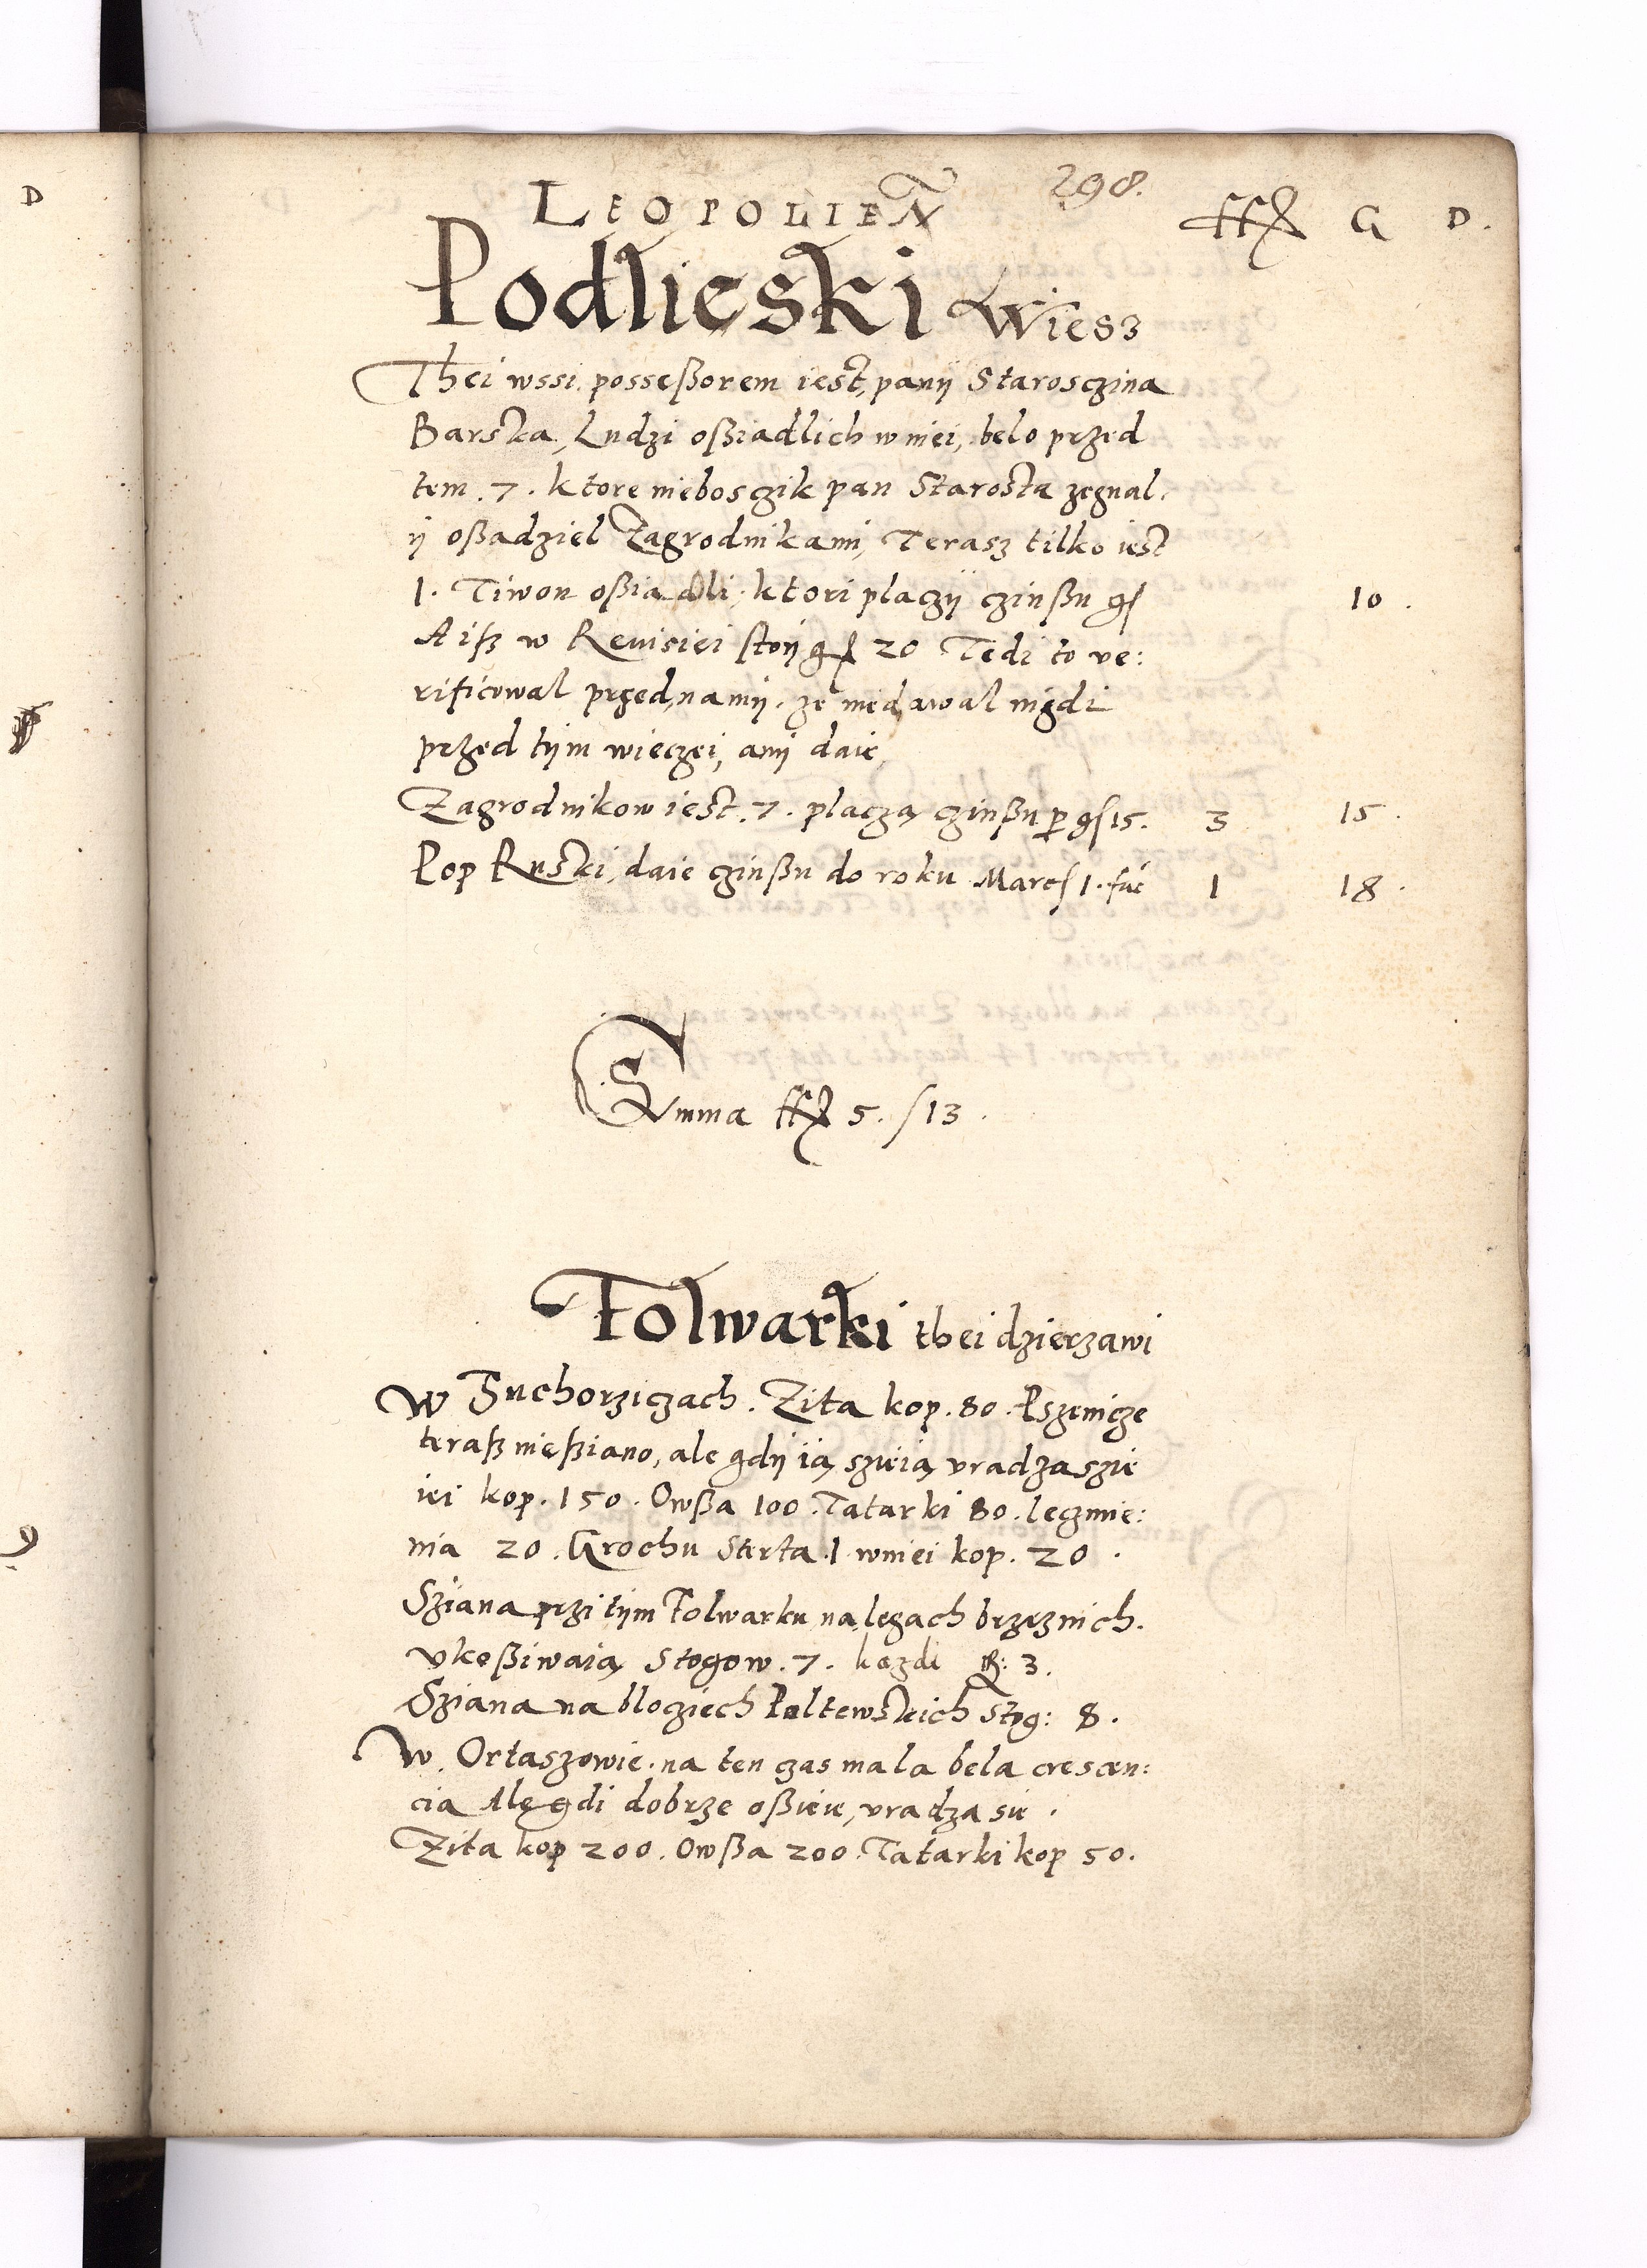 298.
LEOPOLIEN̄ ff G D.
Podlieski Wiesz
Thei wssi posseßorem iest, panÿ Starosczina
Barska, Ludzi oßiadlich w niei, belo przed
tem . 7 . ktore niebosczik pan Starosta zegnal,
ÿ oßadziel Zagrodnikami, Terasz tilko iest
1. Tiwon oßiadli, ktori placzÿ czinßu gſ 10 .
A isz w Reuisiei stoÿ gſ 20 Tedi to ve:
rificowal przed namÿ, ze niedawal nigdi
przed tÿm wieczei, anÿ daie,
Zagrodnikow iest . 7 . placzą czinßu p gſ 15. 3 15 .
Pop Ruski, daie czinßu do roku Marcſ 1 . fac 1 18 .
Summa ff 5. ſ 13 .
Folwarki thei dzierzawi
W Suchorziczach . Zita kop . 80 . Pszenicze
teraß nießiano, ale gdÿ ią szieią vradza szie
iei kop . 150 . Owßa 100 . Tatarki 80 . Ieczmie:
nia 20 . Grochu Sterta 1 wniei kop . 20 .
Sziana przi tÿm Folwarku na legach brzeznich.
vkoßiwaią Stogow . 7 . kozdi 3 .
Sziana na blogiech Poltewskich Stog: 8 .
W Ortaszowie . na ten czas mala bela crescen:
cia Ale gdi dobrze oßieie, vradza sie .
Zita kop 200 . Owßa 200 . Tatarki kop 50 .
D